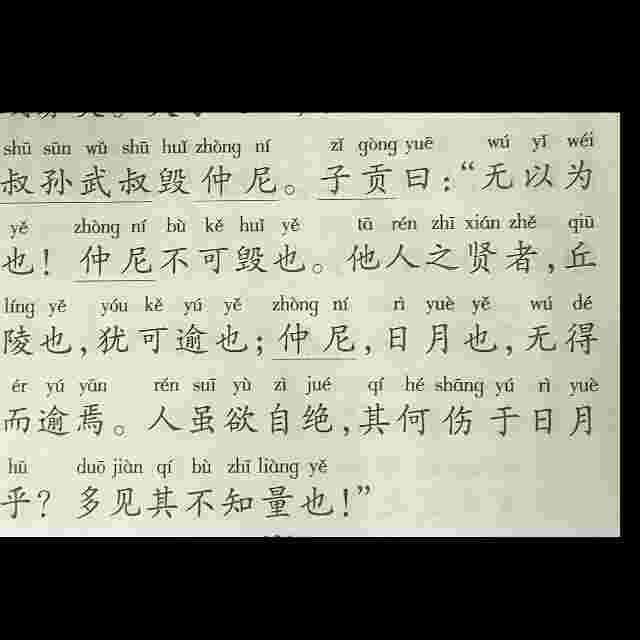 shū sūn wǔ shū huǐ zhòng ní zǐ gòng yuē wú yǐ wéi
叔孙武叔毁仲尼。子贡曰：“无以为
yě zhòng ní bù kě huǐ yě tā rén zhī xián zhě qiū
也！仲尼不可毁也。他人之贤者，丘
líng yě yóu kě yú yě zhòng ní rì yuè yě wú dé
陵也，犹可逾也；仲尼，日月也，无得
ér yú yān rén suī yù zì jué qí hé shāng yú rì yuè
而逾焉。人虽欲自绝，其何伤于日月
hū duō jiàn qí bù zhī liàng yě
乎？多见其不知量也！”